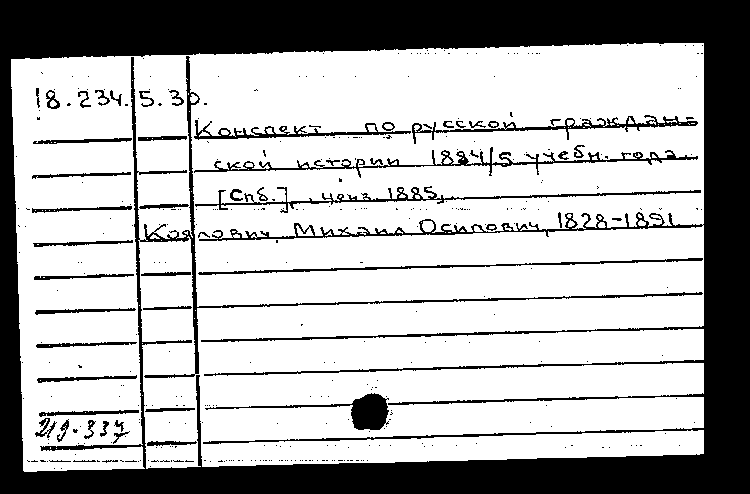 18.234.5.30.
Конспект по русской граждан=
ской истории 1884/5 учебн. года.
[Спб.], ценз. 1885,
Коялович, Михаил Осипович, 1828-1891
219-337